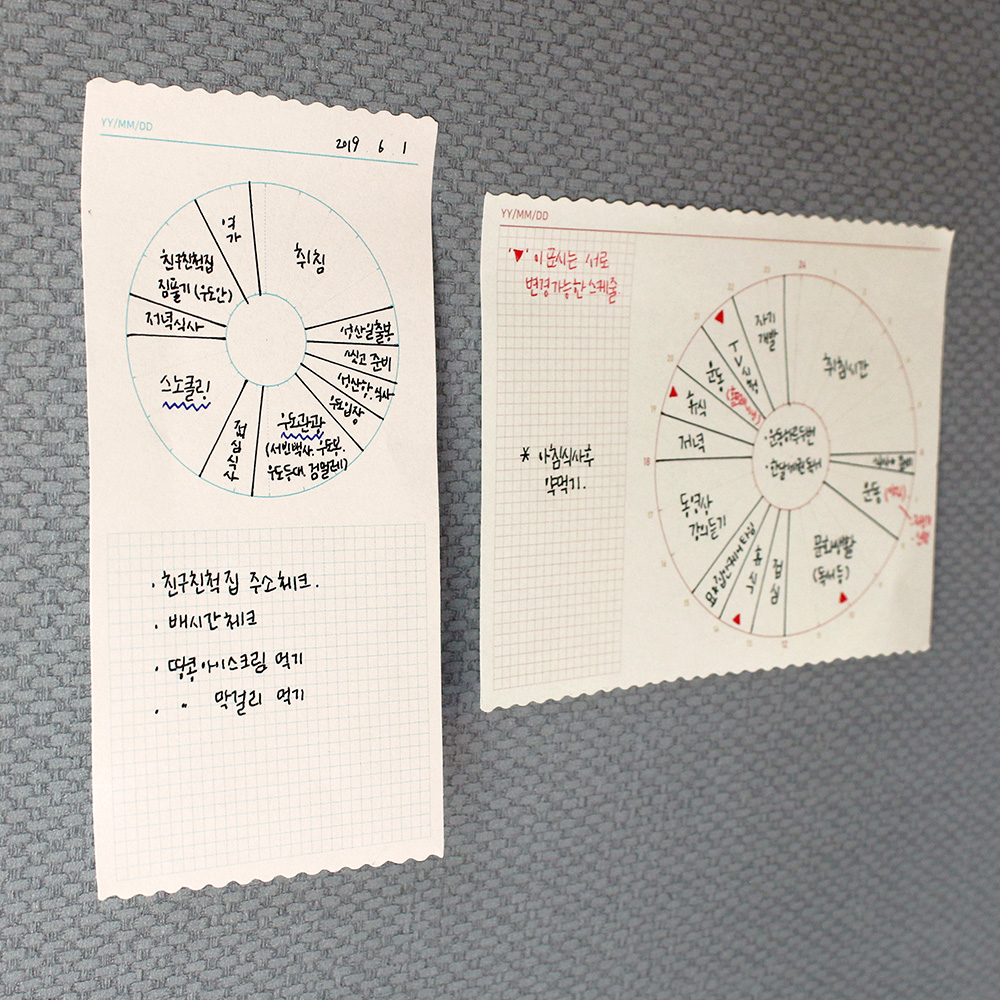 YY/MM/DD
2019 6 1
여가
취침
친구친척집
짐풀기 (우도안)
저녁식사
성산일출봉
씻고 준비
성산항, 식사
우도입장
스노클링
점심식사
우도관광
(서빈백사, 우도봉,
우도등대, 검멀레)
· 친구친척집 주소체크.
· 배시간체크
· 땅콩아이스크림 먹기
· 〃 막걸리 먹기
YY/MM/DD
▲, 이표시는 서로
변경가능한스케줄.
* 아침식사후
약먹기.
24
23
22
21
20
19
18
17
14
13
12
자기
개발
취침시간
TV시청
운동
휴식
저녁
운동
동영상
강의듣기
휴식
점심
문화생활
(독서 등)